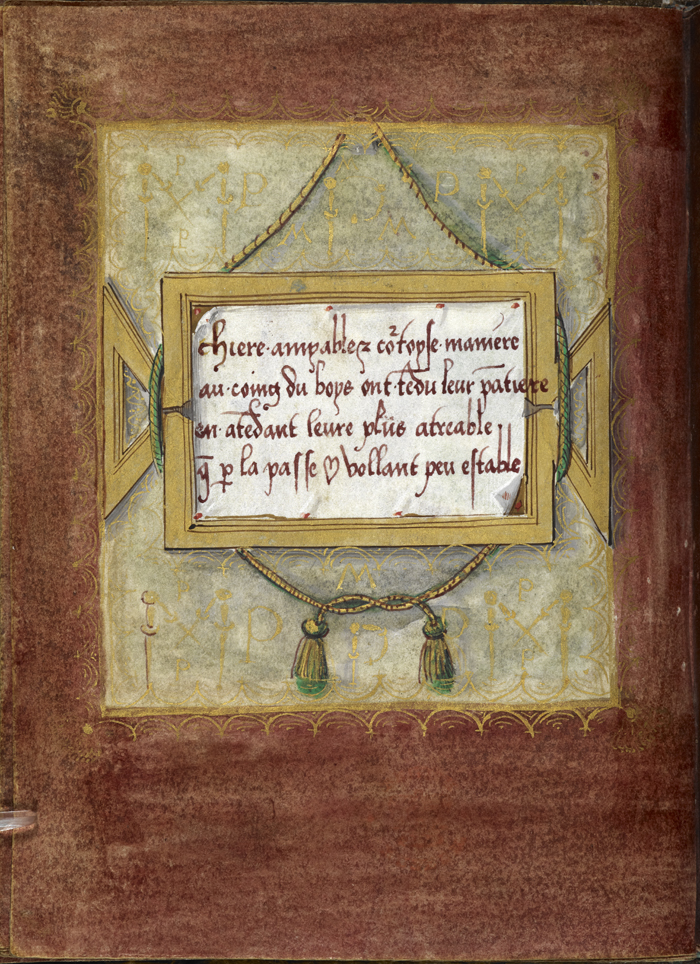 chiere·amyablez cortoyse·maniere
au·coing du boys ont·tēdu leur pātiere
en·atēdant leure plus atreable
q̄ ꝑ la passe ♡ vollant peu estable